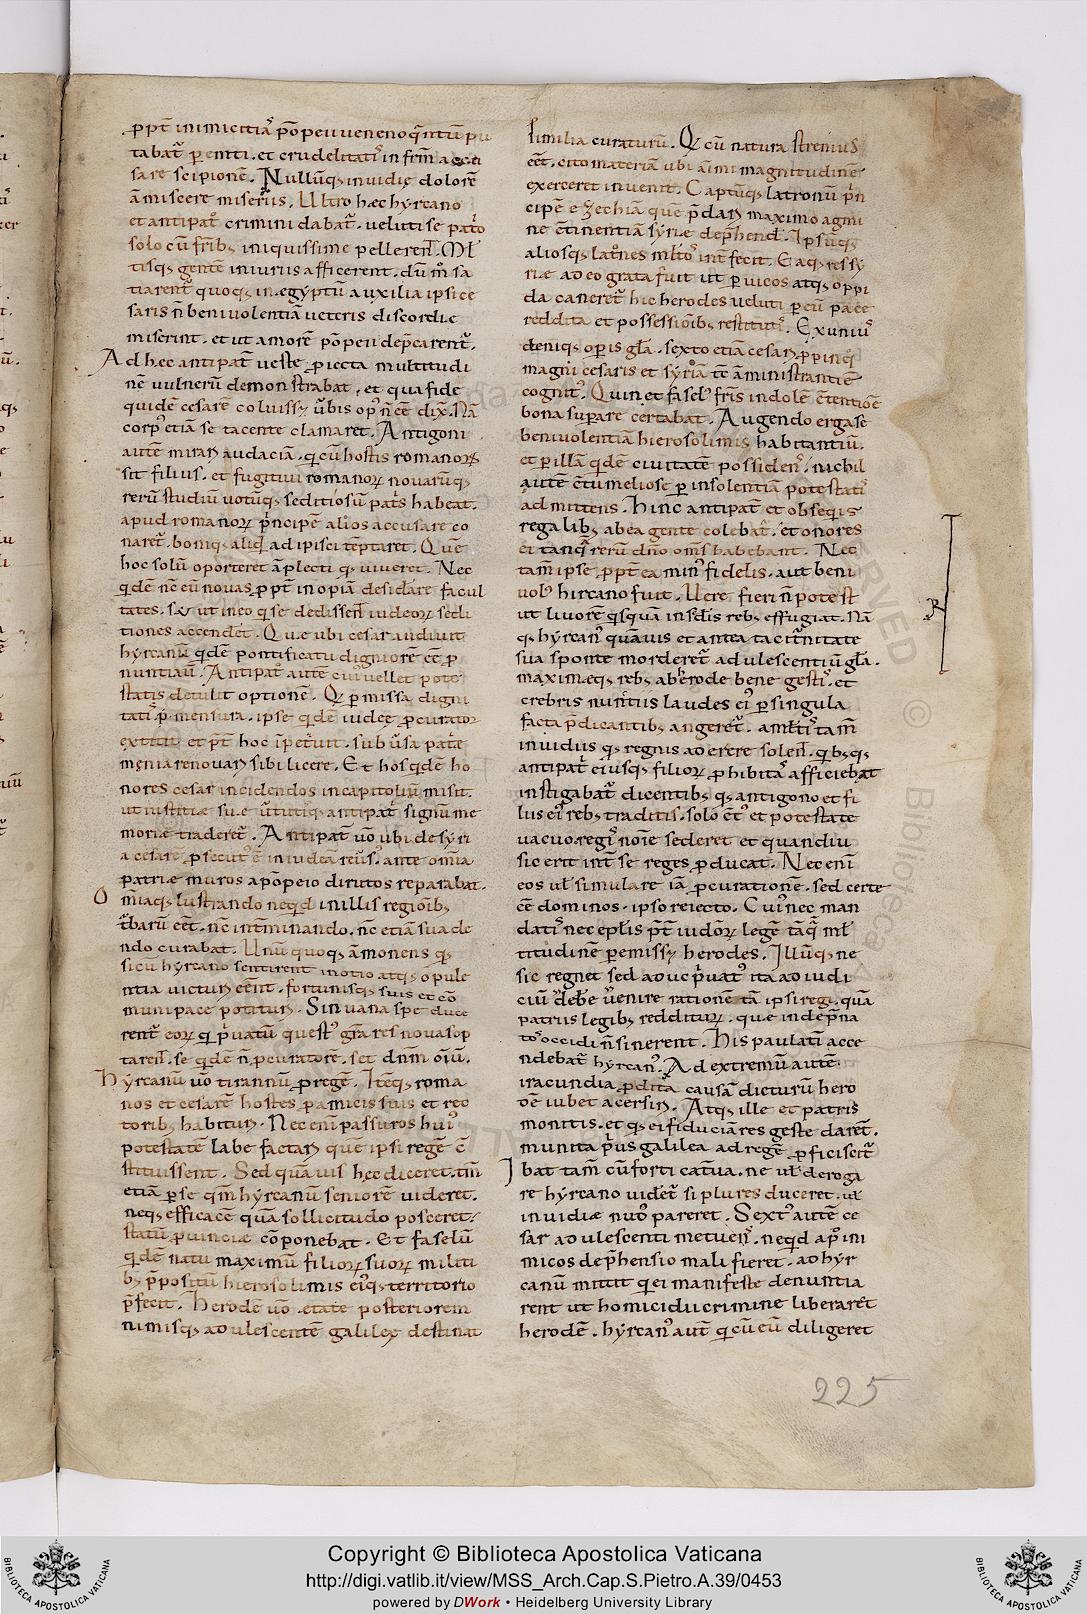 ꝓpt̄ inimicitiaꝰ pōpeii ueneno qͣntū pu
tabat᷑ ꝑempti. et crudelitati᷑ in frm̄ acce
sare scipionē. Nullūqꝫ inuidię dolorē
ā miscere miseriis. Ultro hæc hyrcano
et antipat᷑ crimini dabat᷑. uelitti se pat͛o
solo cū frībꝫ iniquissime pellerent᷑. Ml̄
tisqꝫ gentē iniuriis afficerent. dum̄ sa
tiarent᷑ quoqꝫ in ægyptū auxilia ipsi ce
saris n̄ beniuolentiā ueteris discordię
miserint. et ut amorē pōpeii dep̄carent᷑.
Ad hec antipat᷑ ueste ꝓiecta multitudi
nē uulnerū demonstrabat, et qua fide
quidē cesarē coluissꝫ ūbis opꝰ n̄ ee dix̄. Nā
corpꝰ etiā se tacente clamaret. Antigoni
autē mirarꝫ audaciā. qͥ cū hostis romanorꝫ
sit filius. et fugitiui romanorꝫ nouarūqꝫ
rerū studiū uotūqꝫ seditiosū patͥs habeat.
apud romanorꝫ pͥncipē alios accusare co
naret᷑. boniqꝫ aliqͥd adipisci tēptaret. Quē
hoc solū oporteret āplecti qꝫ uiueret. Nec
qͥdē nc̄ eū nouas ꝓpt̄ inopiā desidare facul
tates. sꝫ ut in eo qͥ se dedissent᷑ iudeorꝫ sedi
tiones accendet᷑. Que ubi cesar audiuit
hyrcanū qͥdē pontificatu digniorē ee ꝓ
nuntiauit. Antipat᷑ autē cuiꝰ uellet pote
statis detulit optionē. Qͥ ꝑmissa digni
tatiꝰ mensura. ipse qͥdē iudeę ꝓcurator
extitit et pt̄ hoc īpetͣuit. subūsa patͥe
męnia renouarꝫ sibi licere. Et hos qͥdē ho
nores cesar incidendos in capitoliū misit.
ut iustitiæ suæ ūtutisqꝫ antipat᷑ signū me
moriæ traderet᷑. Antipat᷑ uō ubi de syri
a cesarē ꝓsecutꝰ ē in iudea reūsꝰ. ante omīa
patriæ muros a pōpeio dirutos reparabat.
Omīaqꝫ lustrando ne qͥd in illis regiōibꝫ
t̄barū eet᷑. nc̄ int̄minando. nc̄ etiā suade
ndo curabat. Unū quoqꝫ āmonens qꝫ
si cū hyrcano sentirent in otio atqꝫ opule
ntia uicturi eent᷑. fortunisqꝫ suis et cō
muni pace potiturꝫ. Sin uana spe duce
rent᷑ eorꝫ qͥ pͥuatū questꝰ gr̄a res nouas op
tarent᷑. se qͥdē n̄ ꝓcuratorē. set dn̄m oīū.
Hyrcanū uō tirannū ꝓ regē. Itēqꝫ roma
nos et cesarē hostes ꝓ amicis suis et rec
toribꝫ habiturꝫ. Nec enī passuros huiꝰ
potestatē labefactarꝫ quē ipsi regē cō
stituissent. Sed quā uis hec diceret. tm̄
etiā ꝑ se qm̄ hyrcanū seniorē uideret.
neqꝫ efficacē quā sollicitudo posceret.
statū ꝓuinciæ cōponebat. Et faselū
qͥdē natu maximū filiorꝫ suorꝫ militi
bꝫ p̄positū hierosolimis eiꝰqꝫ territorio
p̄fecit. Herodē uō ętate posteriorem
nimisqꝫ adulescentē galileę destinat
similia curaturū. Qͥ cū natura strenius
eet᷑. cito materiā ubi aīmi magnitudinē
exerceret inuenit. Captūqꝫ latronū pͥn
cipē ezechiā quē p̄darꝫ maximo agmi
ne c̄tinentiā syriæ dep̄hend᷑. Ipsūqꝫ
aliosqꝫ latͦnes ml̄tos int᷑fecit. Eaqꝫ res sy
riæ adeo grata fuit ut ꝑ uicos atqꝫ oppi
da caneret᷑ hic herodes ueluti ꝑ eū pace
reddita et possessiōibꝫ restitutꝰ. Ex uniuꝰ
deniqꝫ opis gl̄a. sexto etiā cesarꝫ ꝓpinqͦ
magni cesaris et syriā tc̄ āministrantiē
cognitꝰ. Quin et faselꝰ fris indolē c̄tentiōe
bona suꝑare certabat. Augendo erga se
beniuolentiā hierosolimis habitantiū.
et ꝑ illā qͥdē ciuitatē possidenꝰ. nichil
autē c̄tumeliose ꝑ insolentiā potestatiꝰ
admittens. Hinc antipat᷑ et obsequiis
regalibꝫ ab ea gente colebat᷑. et onores
ei tanqͣ rerū dn̄o oms̄ habebant. Nec
tam̄ ipse ꝓpt̄ ea minꝰ fidelis. aut beni
uolꝰ hircano fuit. Uere fieri n̄ potest
ut liuorē qͥsquā in scdis rebꝫ effugiat. Nā
qꝫ hyrcanꝰ quāuis et antea taciturnitate
sua sponte morderet᷑ adulescentiū gl̄a.
maximæqꝫ rebꝫ ab herode bene gestiꝰ. et
crebris nuntiis laudes eiꝰ ꝑ singula
facta p̄dicantibꝫ angeret᷑. a ml̄tiꝰ tam̄
inuidiis qꝫ regnis adesse solent᷑. qͥbꝫqꝫ
antipat᷑ eiusqꝫ filiorꝫ ꝓhibitaꝰ afficiebat
instigabat᷑ dicentibꝫ qꝫ antigono et fi
liis eiꝰ rebꝫ traditis. solo c̄tꝰ et potestate
uacuo regiꝰ noīe sederet et quandiu
sic erit int᷑ se reges ꝓducat. Nec enī
eos ul̄ simulare iā ꝓcurationē. sed certe
ee dominos. ipso reiecto. Cuiꝰ nec man
datiꝰ nec epl̄is pt̄ iudeorꝫ legē tāqͣ ml̄
titudinē peremissꝫ herodes. Illūqꝫ ne
sic regnet sed ad uc pͥuatꝰ ita ad iudi
ciū debe uenire rationē tā ipsi regi. quā
patriis legibꝫ redditurꝰ. quæ indēpna
toꝰ occidi n̄ sinerent. His paulatī acce
ndebat᷑ hyrcanꝰ. Ad extremū autē
iracundia ꝓdita causā dicturū hero
dē iubet acersirꝫ. Atqꝫ ille et patris
monitis. et qꝫ ei fiduciā res geste darēt.
munita pͥus galilea ad regē ꝓficiscit᷑
Ibat tam̄ cū forti cat̄ua. ne ul̄ deroga
re hyrcano uidet᷑ si plures duceret. ul̄
inuidiæ nudꝰ pareret. Sextꝰ autē ce
sar adulescenti metuenꝰ. ne qͥd apꝰ ini
micos dep̄hensio mali fieret. ad hyr
canū mittit qͥ ei manifeste denuntia
rent ut homicidii crimine liberaret
herodē. hyrcanꝰ aut̄ qͥ cū eū diligeret
225
Copyright © Biblioteca Apostolica Vaticana
http://digi.vatlib.it/view/MSS_Arch.Cap.S.Pietro.A.39/0453
powered by DWork • Heidelberg University Library